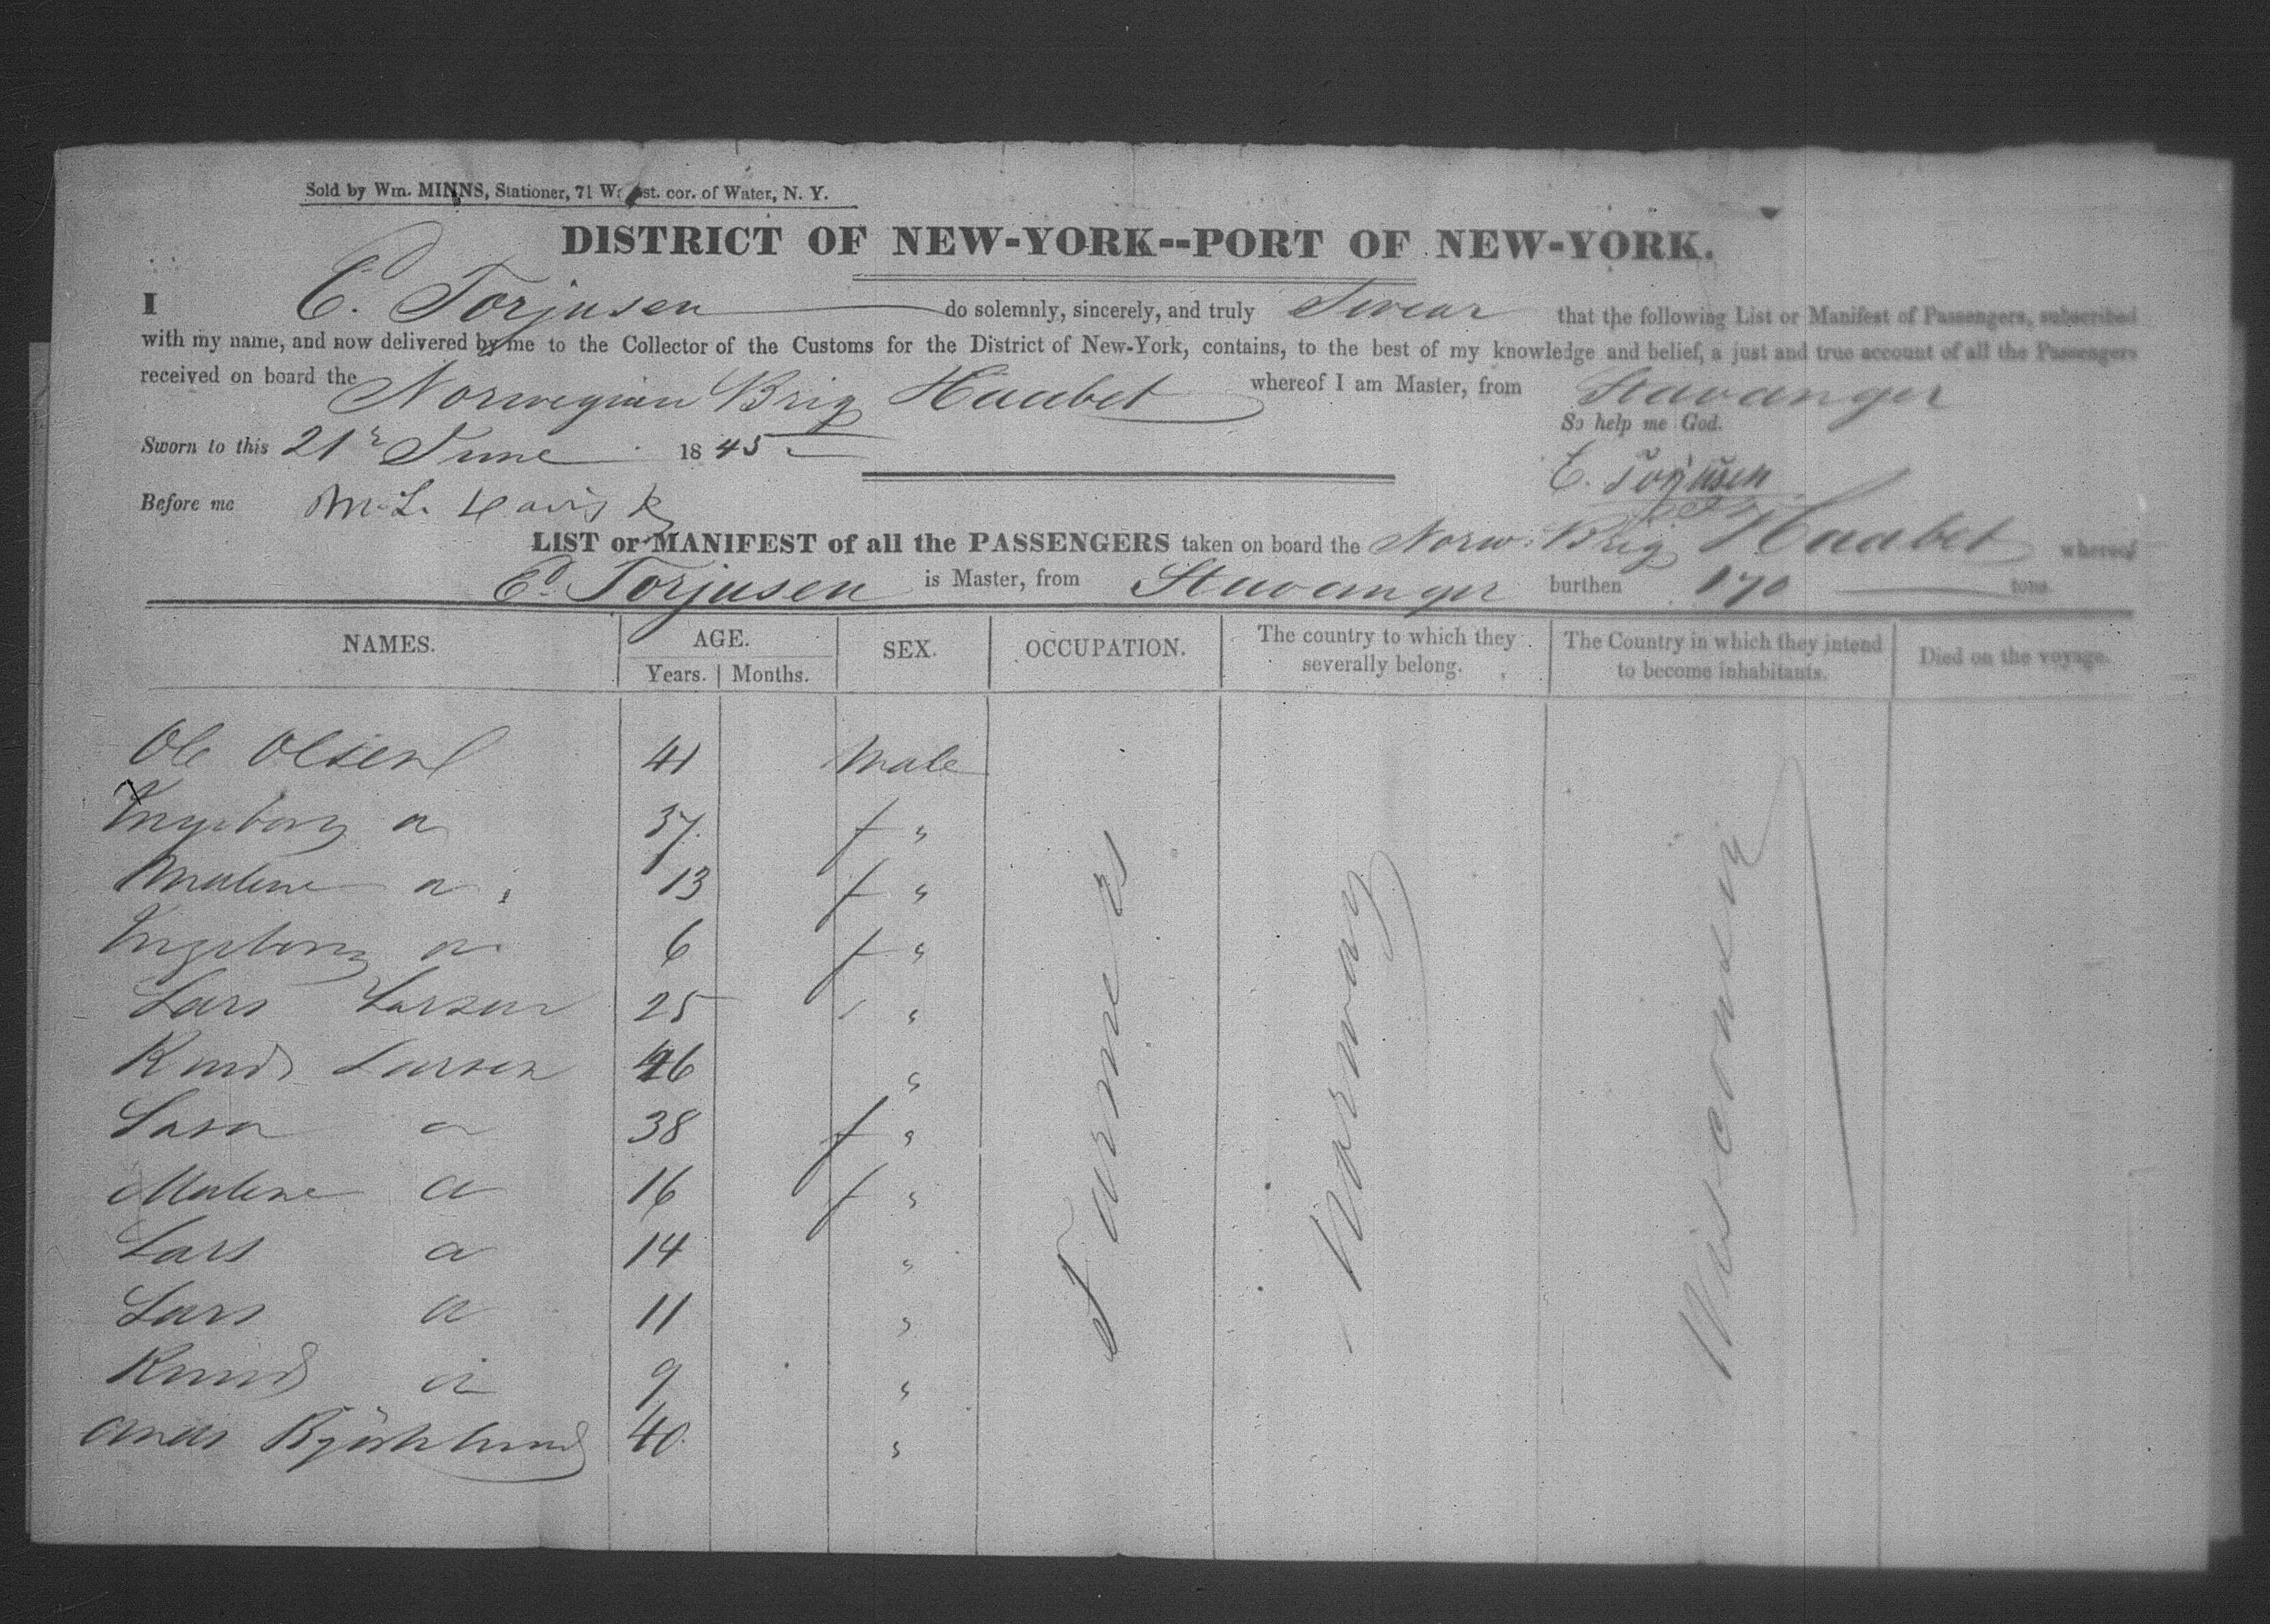 Sold by Wm. MINNS, Stationer, 71 W st. cor. of Water, N. Y.
DISTRICT OF NEW-YORK--PORT OF NEW-YORK.
I E. Torjusen do solemnly, sincerely, and truly Swear that the following List or Manifest of Passengers, subscribed
with my name, and now delivered by me to the Collector of the Customs for the District of New-York, contains, to the best of my knowledge and belief, a just and true account of all the Passengers
received on board the Norwegian Brig Haabet whereof I am Master, from Stavanger
So help me God.
Sworn to this 21 June 1845
E. Torjusen
Before me M. L. Davis
LIST or MANIFEST of all the PASSENGERS taken on board the Norw. Brig Haabet whereof
E. Torjusen is Master, from Stavanger burthen 170 tons
NAMES. AGE. Years. Months. SEX. OCCUPATION. The country to which they severally belong. The Country in which they intend to become inhabitants. Died on the voyage.
Ole Olsen 41 Male
Ingeborg a 37 f "
Malene a 13 f "
Ingeborg a 6 f "
Lars Larsen 25 "
Knud Larsen 46 "
Sara a 38 f "
Malene a 16 f "
Lars a 14 "
Lars a 11 "
Knud a 9 "
40 "
Farmers
Norway
Wisconsin